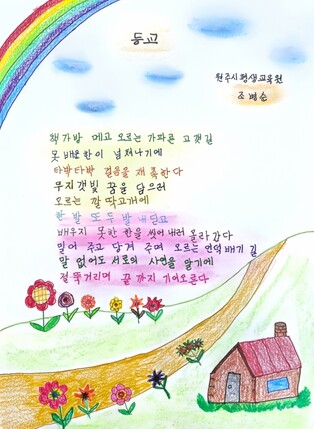 등교
원주시평생교육원
조병순
책가방 메고 오르는 가파른 고갯길
못 배운 한이 넘쳐나기에
타박타박 걸음을 재촉한다
무지갯빛 꿈을 담으러
오르는 깔딱고개에
한 발 또 두 발 내딛고
배우지 못한 한을 씻어 내러 올라간다
밀어 주고 당겨 주며 오르는 언덕배기 길
말 없어도 서로의 사연을 알기에
절뚝거리며 끝까지 기어오른다